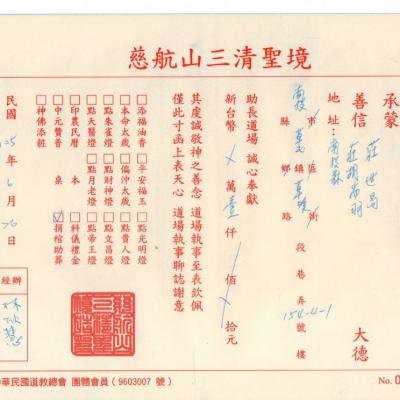 慈航山三清聖境
承蒙
善信 莊世昌
大德
地址：南投 縣市 草屯 鄉鎮 路街 段 巷 弄 154-4-1 號 樓
助長道場 誠心奉獻
新台幣 ╳ 萬 壹 仟 佰 ╳ 拾元
其虔誠敬神之善念 道場執事至表欽佩
僅此寸函上表天心 道場執事聊誌謝意
□添福油香 □平安福玉 □點光明燈
□本命太歲 □偏沖太歲 □點貴人燈
□點朱雀燈 □點財神燈 □點文昌燈
□點天醫燈 □點月老燈 □點帝王燈
□印農民曆 □科儀禮金
□中元贊普 桌 ☑捐棺助葬
□神佛添粧
民國 年 6 月 26 日
經辦
中華民國道教總會 團體會員（9603007 號）
No. 0